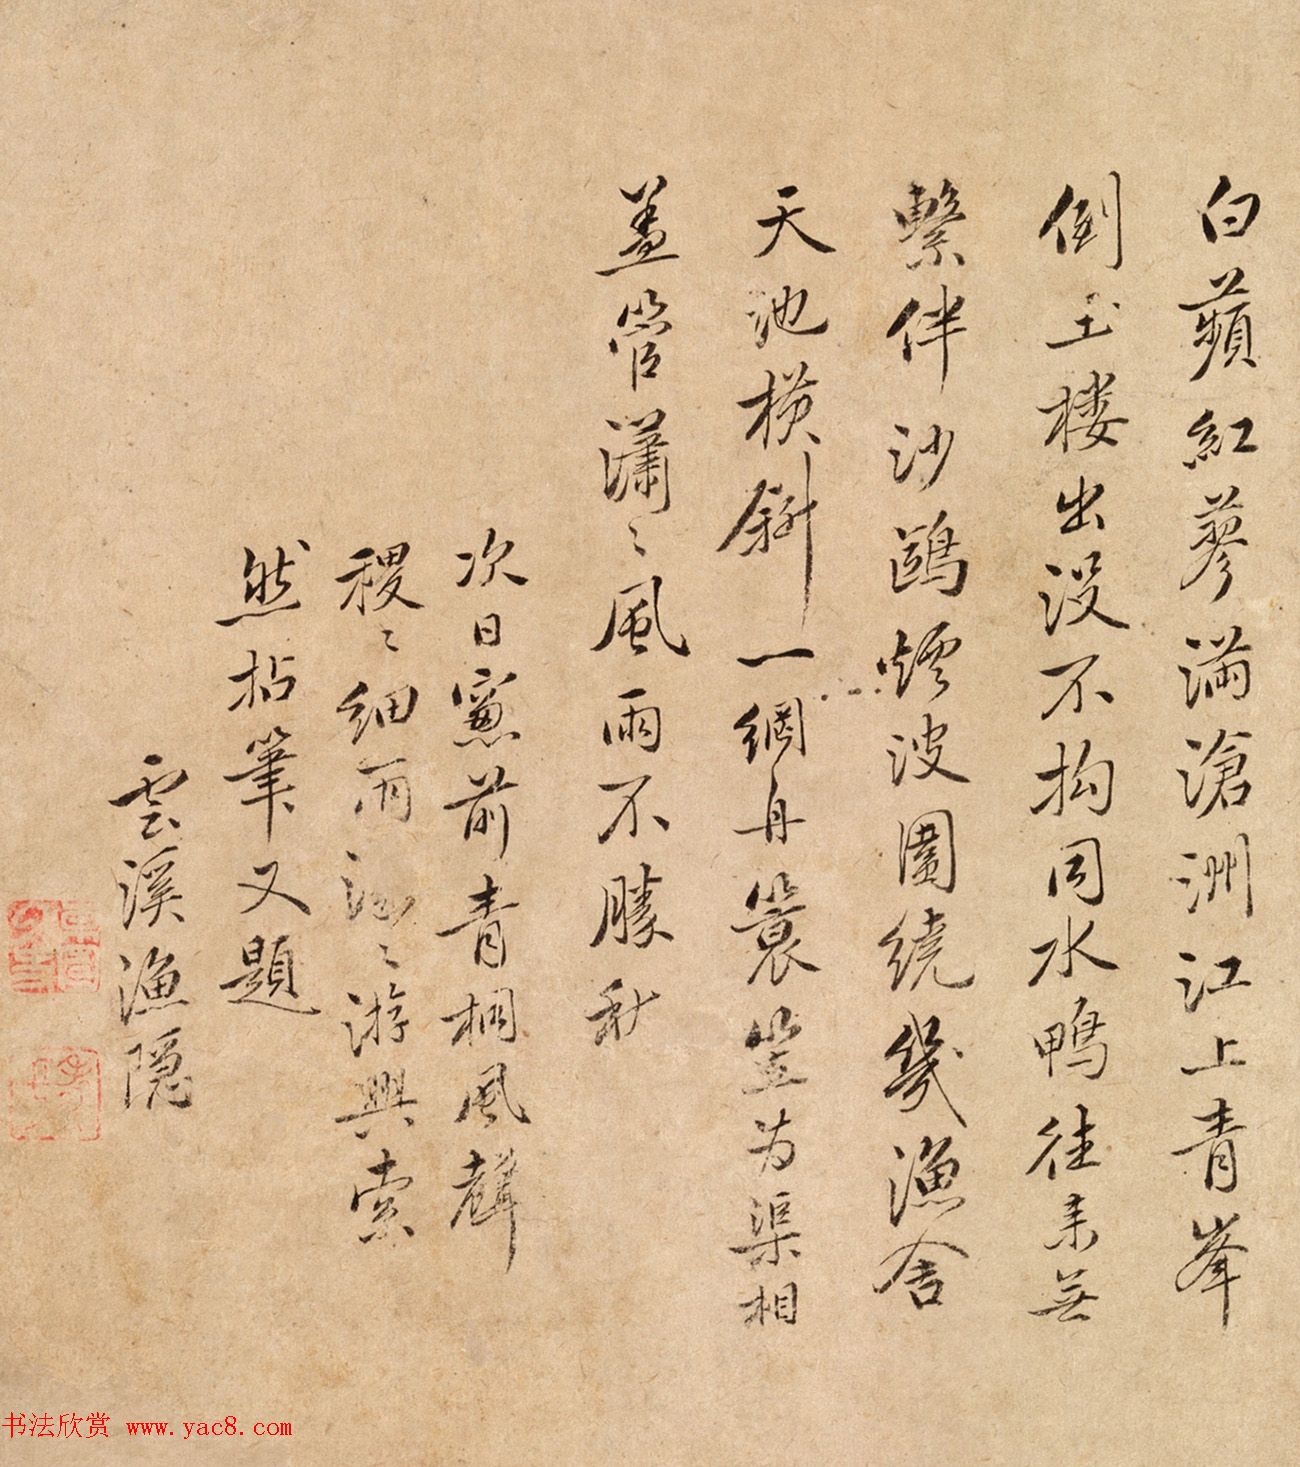 白蘋紅蓼滿滄洲江上青峯
倒玉楼出没不拘同水鴨往来無
繫伴沙鷗煙波圍繞幾漁舍
天池横斜一網舟簑笠为渠相
盖管瀟〻風雨不勝秋
次日窻前青桐風聲
稷〻細雨泌〻游興索
然拈筆又題
雲溪漁隱
书法欣赏 www.yac8.com